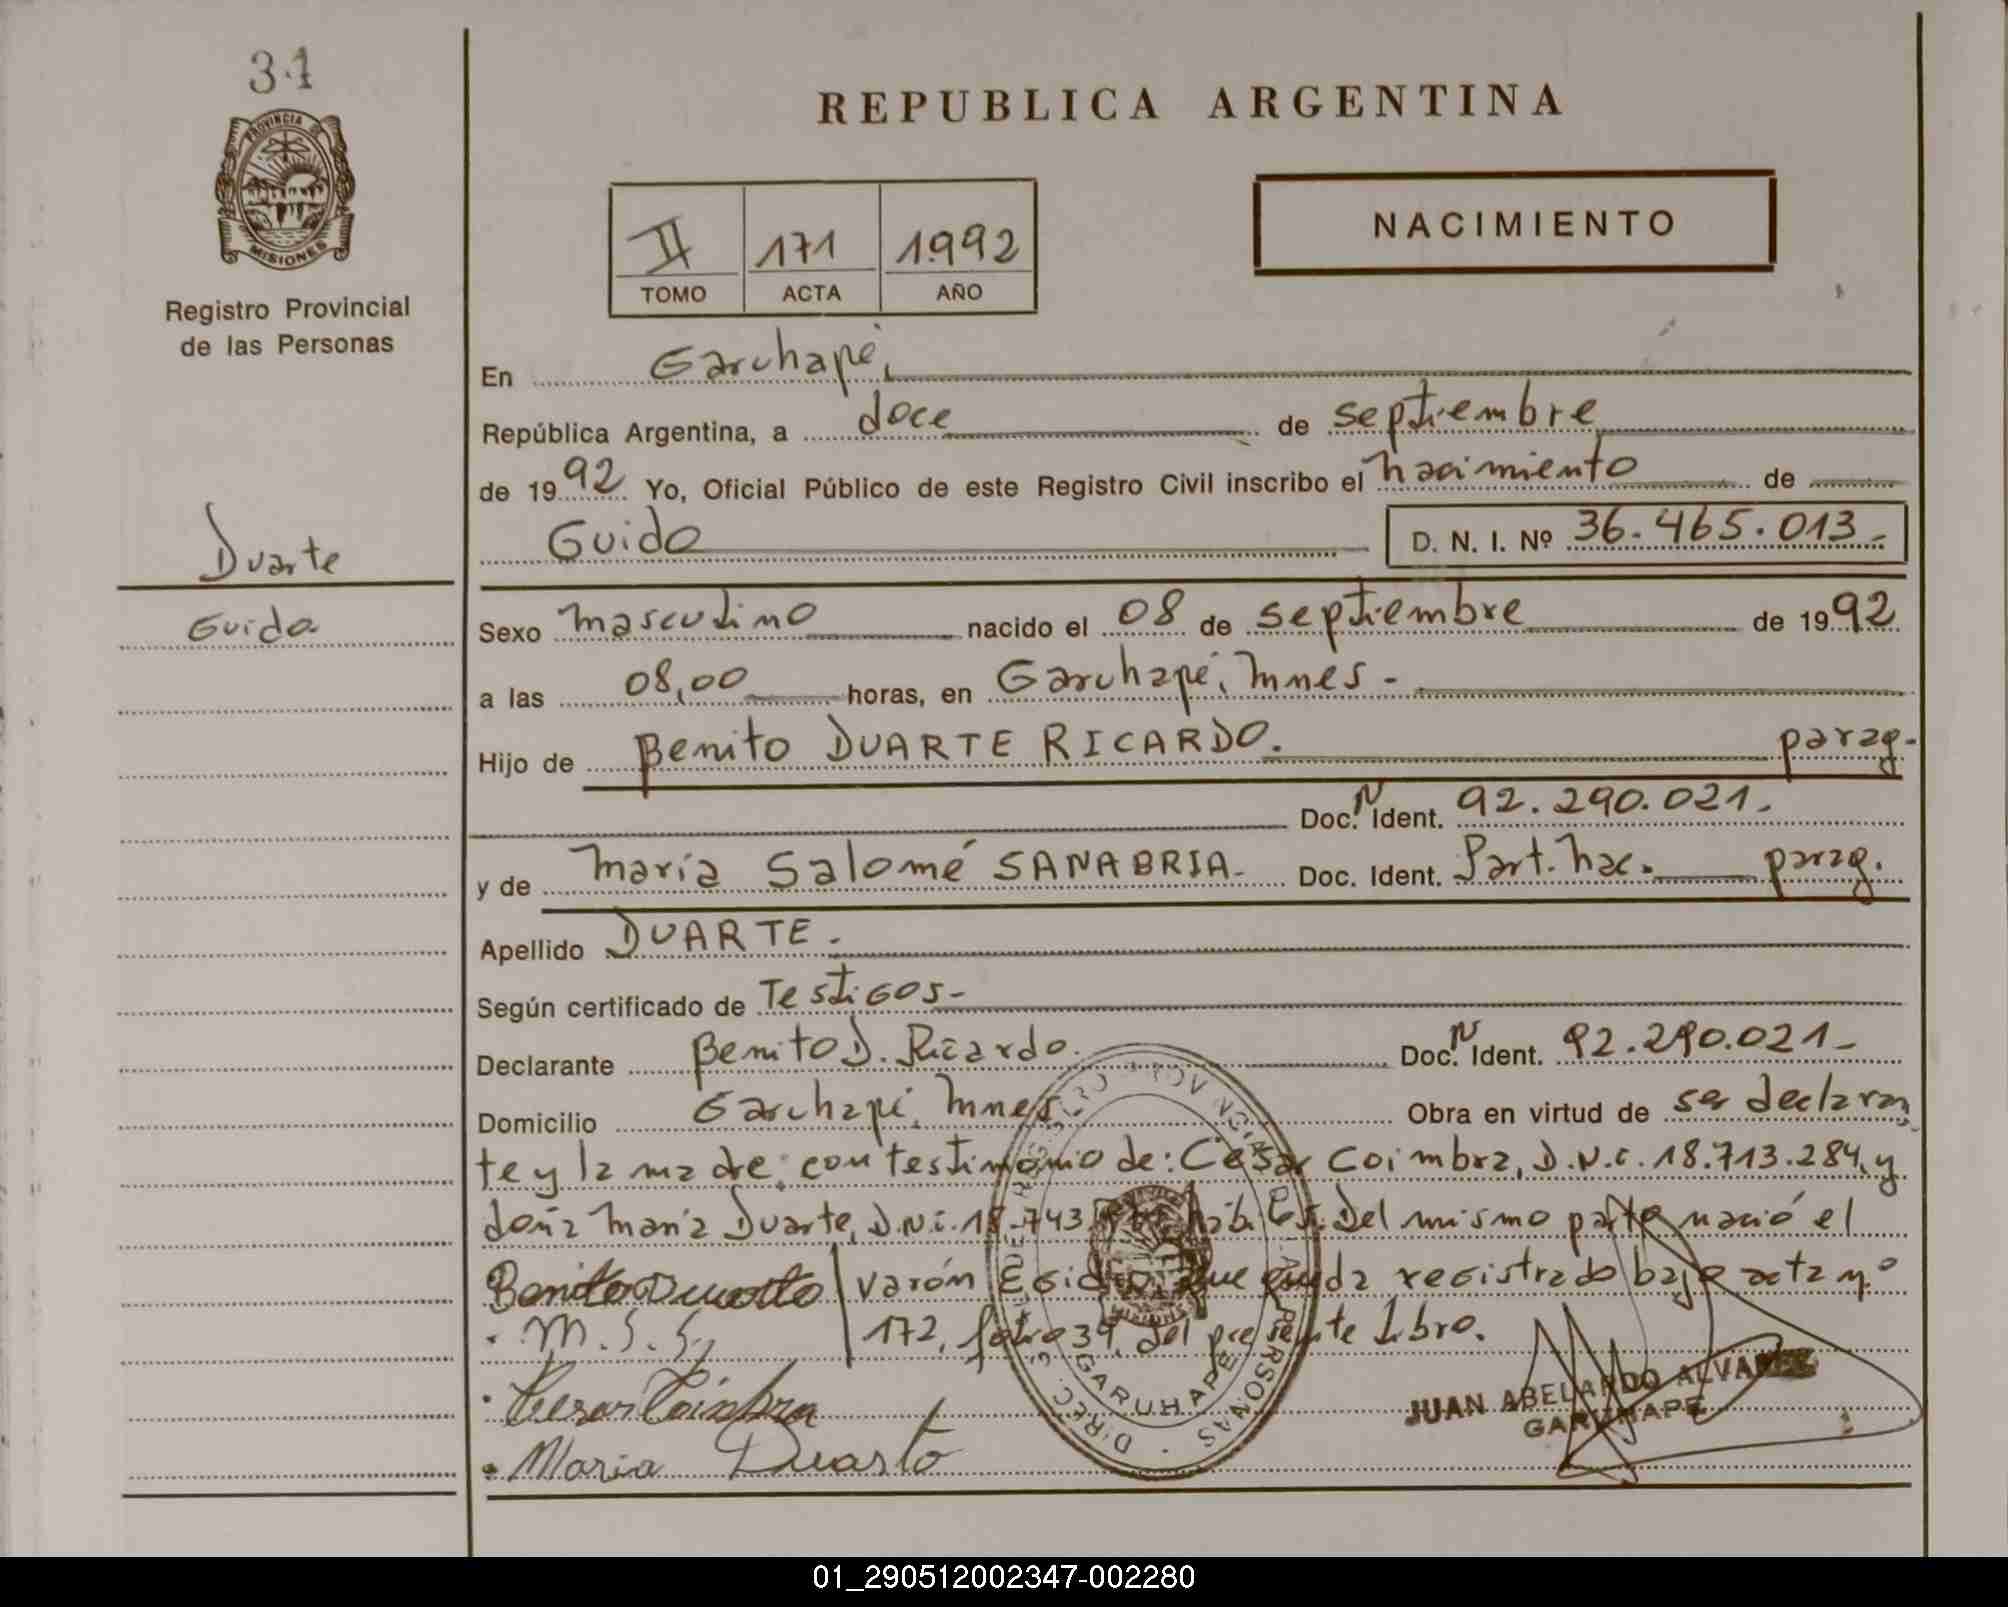 31
PROVINCIA DE
MISIONES
Registro Provincial
de las Personas
Duarte
Guido
REPUBLICA ARGENTINA
II 171 1992
TOMO ACTA AÑO
NACIMIENTO
En Garuhapé,
República Argentina, a doce de septiembre
de 1992 Yo, Oficial Público de este Registro Civil inscribo el nacimiento de
Guido D. N. I. Nº 36.465.013-
Sexo masculino nacido el 08 de septiembre de 1992
a las 08,00 horas, en Garuhapé, Mnes -
Hijo de Benito DUARTE RICARDO. parag-
Doc. N Ident. 92.290.021-
y de María Salomé SANABRIA- Doc. Ident. Part. nac. parag.
Apellido DUARTE.
Según certificado de Testigos-
Declarante Benito D. Ricardo. Doc. N Ident. 92.290.021-
Domicilio Garuhapé, Mnes. Obra en virtud de ser declaran
te y la madre; con testimonio de: César Coimbra, D.N.i. 18.713.284, y
doña María Duarte, D.N.i. 18.743 hábiles. Del mismo parto nació el
Benito Duarte varón Egidio, que queda registrado bajo acta nº
. M. S. S. 172, folio 34, del presente Libro.
. Cesar Coimbra
. Maria Duarte
DIREC. GRAL. DEL REGISTRO PROVINCIAL DE LAS PERSONAS
GARUHAPE
JUAN ABELARDO ALVAREZ
GARUHAPE
01_290512002347-002280